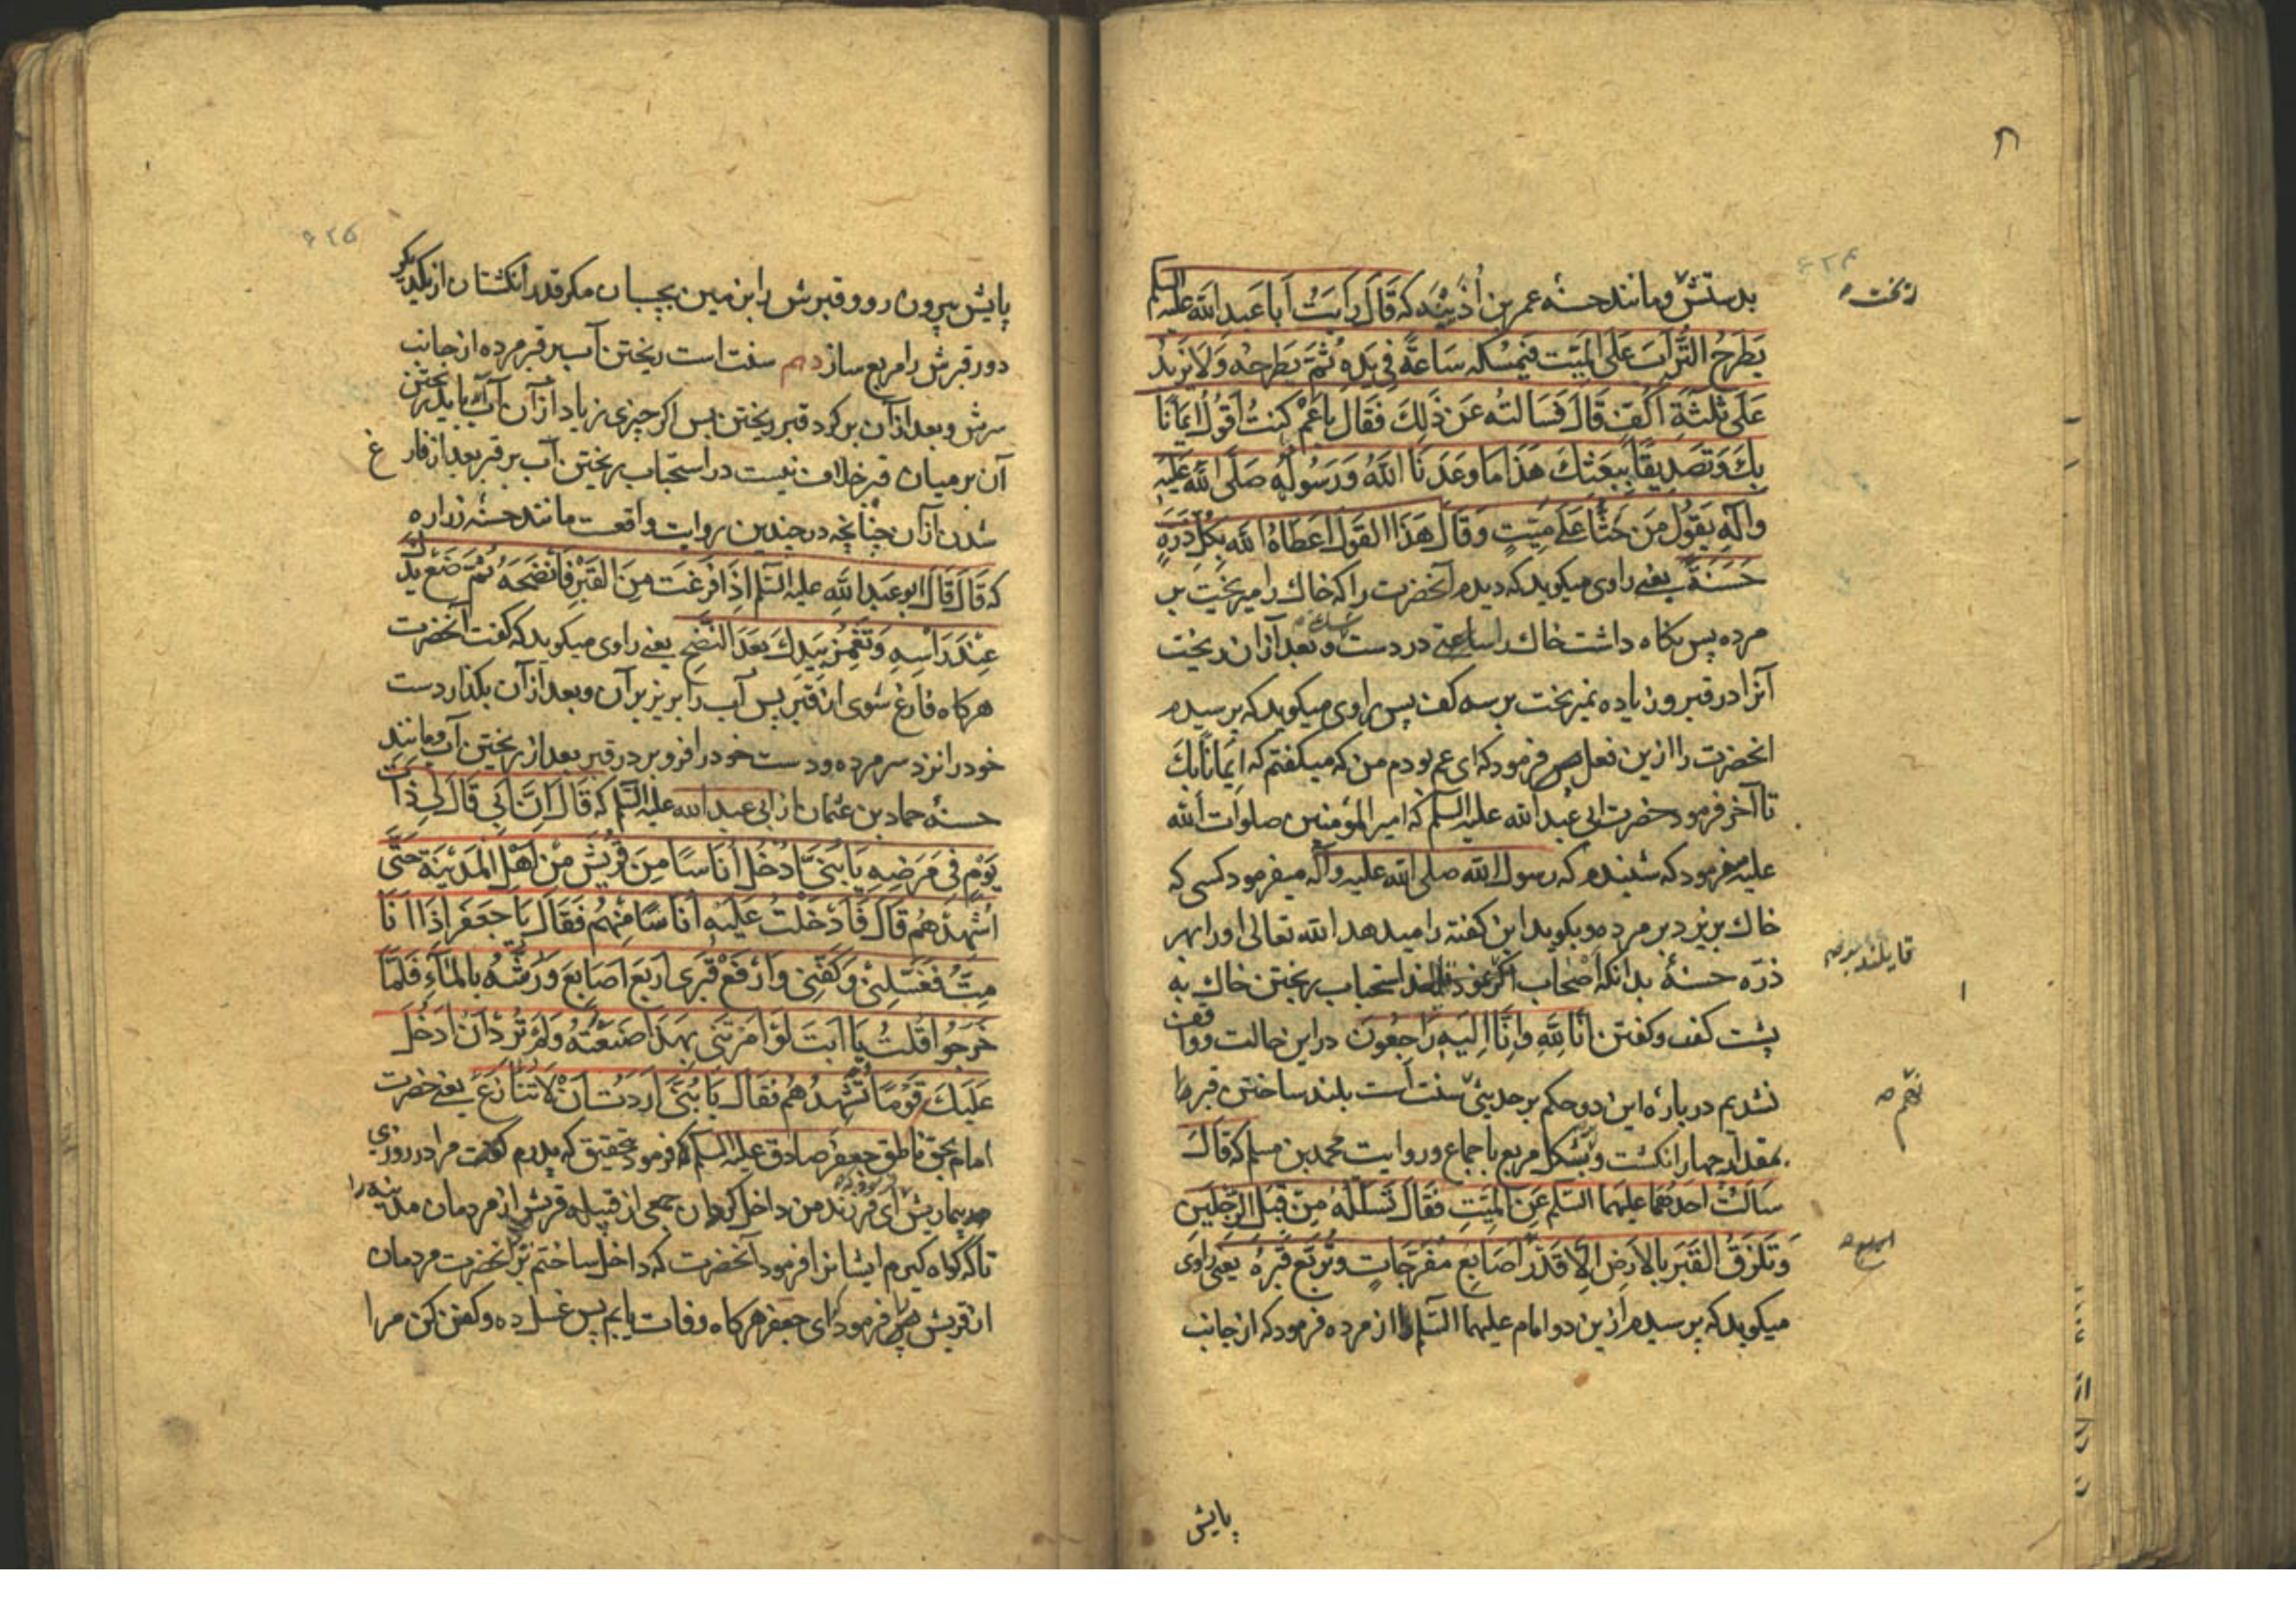 بدستش و مانند حسنه عمر بن أذینه که قَالَ رَأیتُ أبا عبد الله علیه السلم
یَطرَحُ التُّرابَ عَلَی المیّت فیمسکه سَاعَةً فِی یَدِه ثُمَّ یَطرحُه وَلا یَزیدُ
عَلَی ثلثَةِ اَکُفّ قَالَ فَسَالتُه عَن ذَلِکَ فَقَالَ یا عُمَرُ کنتُ اَقُولُ ایمَانًا
بِکَ وَ تَصدِیقًا بِبَعثِکَ هَذا مَا وعَدَنَا اللهُ وَ رَسُولُه صَلَّی الله عَلَیه
وآلهِ یَقُولُ مَن حَثَا عَلی مَیّتٍ وَ قَالَ هَذَا القَولَ اَعطَاهُ الله بِکُلّ ذَرَّةٍ
حَسَنَةً یعنی راوی میکوید که دیدم آنحضرت را که خاک را میریخت بر
مرده پس نکاه داشت خاک را ساعتی در دست و بعد از ان ریخت
آنرا در قبر و زیاده نمیریخت بر سه کف پس راوی میکوید که پرسیدم
انحضرت را ازین فعل پس فرمود که ای عم بودم من که میکفتم که ایمَانًا بِکَ
تا آخر فرمود حضرت ابی عبد الله علیه السلم که امیر المؤمنین صلوات الله
علیه میفرمود که شنیدم که رسول الله صلی الله علیه وآله میفرمود کسی که
خاک بریزد بر مرده و بکوید این کفته را میدهد الله تعالی او را بهر
ذرّه حسنهٔ بدانکه اصحاب استحباب ریختن خاک به
پشت کف و کفتن اِنّا لِلّهِ وَاِنَّا اِلَیهِ رَاجِعُونَ در این حالت و واقف
نشدیم در بارهٔ این دو حکم بر حدیثی سنت است بلند ساختن قبر
بمقدار چهار انکشت و بشکل مربع باجماع و روایت محمد بن مسلم که قالَ
سَاَلتُ اَحَدَهُمَا علیهما السّلم عَنِ المَیّتِ فَقَالَ تَسُلّهُ مِن قِبَلِ الرّجلَینِ
وَ تَلزَقُ القَبَرَ بالاَرضِ اِلّا قَدرَ اَصَابِعَ مُفَرَّجَاتٍ وَ تُرَبّع قَبرَهُ یعنی راوی
میکوید که پرسیدم از ین دو امام علیهما السّلم از مرده فرمود که از جانب
پایش
نهم
پایش بیرون رو و قبرش را بزمین بچسبان مکر قدر انکشتان از یکدیکر
دور قبرش را مربع ساز دهم سنت است ریختن آب بر قبر مرده از جانب
سرش و بعد از آن بر کرد قبر ریختن پس اکر چیزی زیاد از آن آب آید ریختن
آن بر میان قبر خلاف نیست در استحباب ریختن آب بر قبر بعد از فارغ
شدن از آن چنانچه در چندین روایت واقعست مانند حسنه زراره
که قَالَ قَالَ ابو عَبدِ اللهِ علیه السّلم اِذَا فَرَغتَ مِنَ القَبرِ فَانضَحهُ ثُمَّ ضَع یَدَکَ
عِندَ رَاسِهِ وَ تَغمِزُ بِیَدِکَ بَعدَ النَّضحِ یعنی راوی میکوید که کفت آنحضرت
هرکاه فارغ شوی از قبر پس آب را بریز بر آن و بعد از آن بکذار دست
خود را نزد سر مرده و دست خود را فرو بر در قبر بعد از ریختن آب و مانند
حسنه حماد بن عثمان از ابی عبد الله علیه السّلم که قَالَ اِنَّ اَبِی قَالَ لِی ذَاتَ
یَومٍ فِی مَرَضِهِ یَا بُنَیَّ اَدخِل اُنَاسًا مِن قُرَیشٍ مِن اَهلِ المَدِینَةِ حَتَّی
اُشهِدَهُم قَالَ فَاَدخَلتُ عَلَیهِ اُنَاسًا مِنهُم فَقَالَ یَا جَعفَر اِذَا اَنَا
مِتُّ فَغَسّلنِی وَ کَفّنِی وَارفَع قَبرِی اَربَعَ اَصَابِعَ وَرُشَّهُ بِالمَاءِ فَلَمَّا
خَرَجُوا قُلتُ یَا اَبَتِ لَو اَمَرتَنِی بِهَذَا صَنَعتُهُ وَلَم تُرِد اَن اُدخِلَ
عَلَیکَ قَومًا تُشهِدُهُم فَقَالَ یَا بُنَیَّ اَرَدتُ اَن لا تُنَازَعَ یعنی حضرت
امام بحق ناطق جعفر صادق علیه السلم فرمود بتحقیق که پدرم کفت مرا در روزی
بیماریش ای فرزند من داخل کردان جمعی از قبیله قریش از مردمان مدینه را
تا که کواه کیرم ایشانرا فرمود آنحضرت که داخل ساختم بر آنحضرت مردمان
از قریش پس فرمود ای جعفر هرکاه وفات یابم پس غسل ده و کفن کن مرا